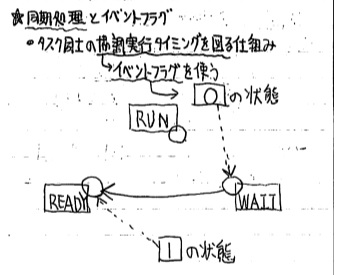 ☆同期処理とイベントフラグ
・タスク同士の協調実行タイミングを図る仕組み
イベントフラグを使う
0の状態
RUN
READY
WAIT
1の状態